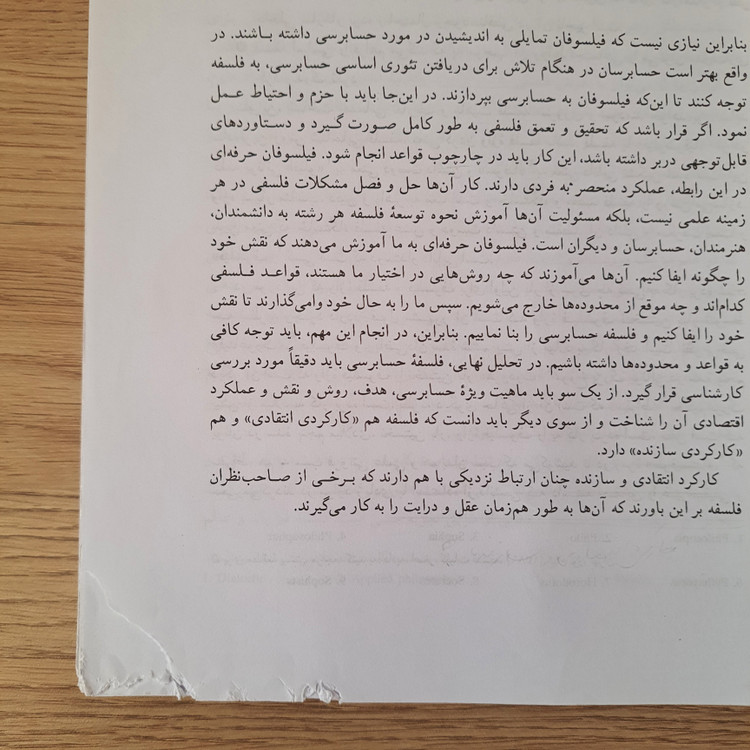 بنابراین نیازی نیست که فیلسوفان تمایلی به اندیشیدن در مورد حسابرسی داشته باشند. در
واقع بهتر است حسابرسان در هنگام تلاش برای دریافتن تئوری اساسی حسابرسی، به فلسفه
توجه کنند تا این‌که فیلسوفان به حسابرسی بپردازند. در این‌جا باید با حزم و احتیاط عمل
نمود. اگر قرار باشد که تحقیق و تعمق فلسفی به طور کامل صورت گیرد و دستاوردهای
قابل‌توجهی دربر داشته باشد، این کار باید در چارچوب قواعد انجام شود. فیلسوفان حرفه‌ای
در این رابطه، عملکرد منحصر به فردی دارند. کار آن‌ها حل و فصل مشکلات فلسفی در هر
زمینه علمی نیست، بلکه مسئولیت آن‌ها آموزش نحوه توسعهٔ فلسفه هر رشته به دانشمندان،
هنرمندان، حسابرسان و دیگران است. فیلسوفان حرفه‌ای به ما آموزش می‌دهند که نقش خود
را چگونه ایفا کنیم. آن‌ها می‌آموزند که چه روش‌هایی در اختیار ما هستند، قواعد فلسفی
کدام‌اند و چه موقع از محدوده‌ها خارج می‌شویم. سپس ما را به حال خود وامی‌گذارند تا نقش
خود را ایفا کنیم و فلسفه حسابرسی را بنا نماییم. بنابراین، در انجام این مهم، باید توجه کافی
به قواعد و محدوده‌ها داشته باشیم. در تحلیل نهایی، فلسفهٔ حسابرسی باید دقیقاً مورد بررسی
کارشناسی قرار گیرد. از یک سو باید ماهیت ویژهٔ حسابرسی، هدف، روش و نقش و عملکرد
اقتصادی آن را شناخت و از سوی دیگر باید دانست که فلسفه هم «کارکردی انتقادی» و هم
«کارکردی سازنده» دارد.
کارکرد انتقادی و سازنده چنان ارتباط نزدیکی با هم دارند که برخی از صاحب‌نظران
فلسفه بر این باورند که آن‌ها به طور هم‌زمان عقل و درایت را به کار می‌گیرند.